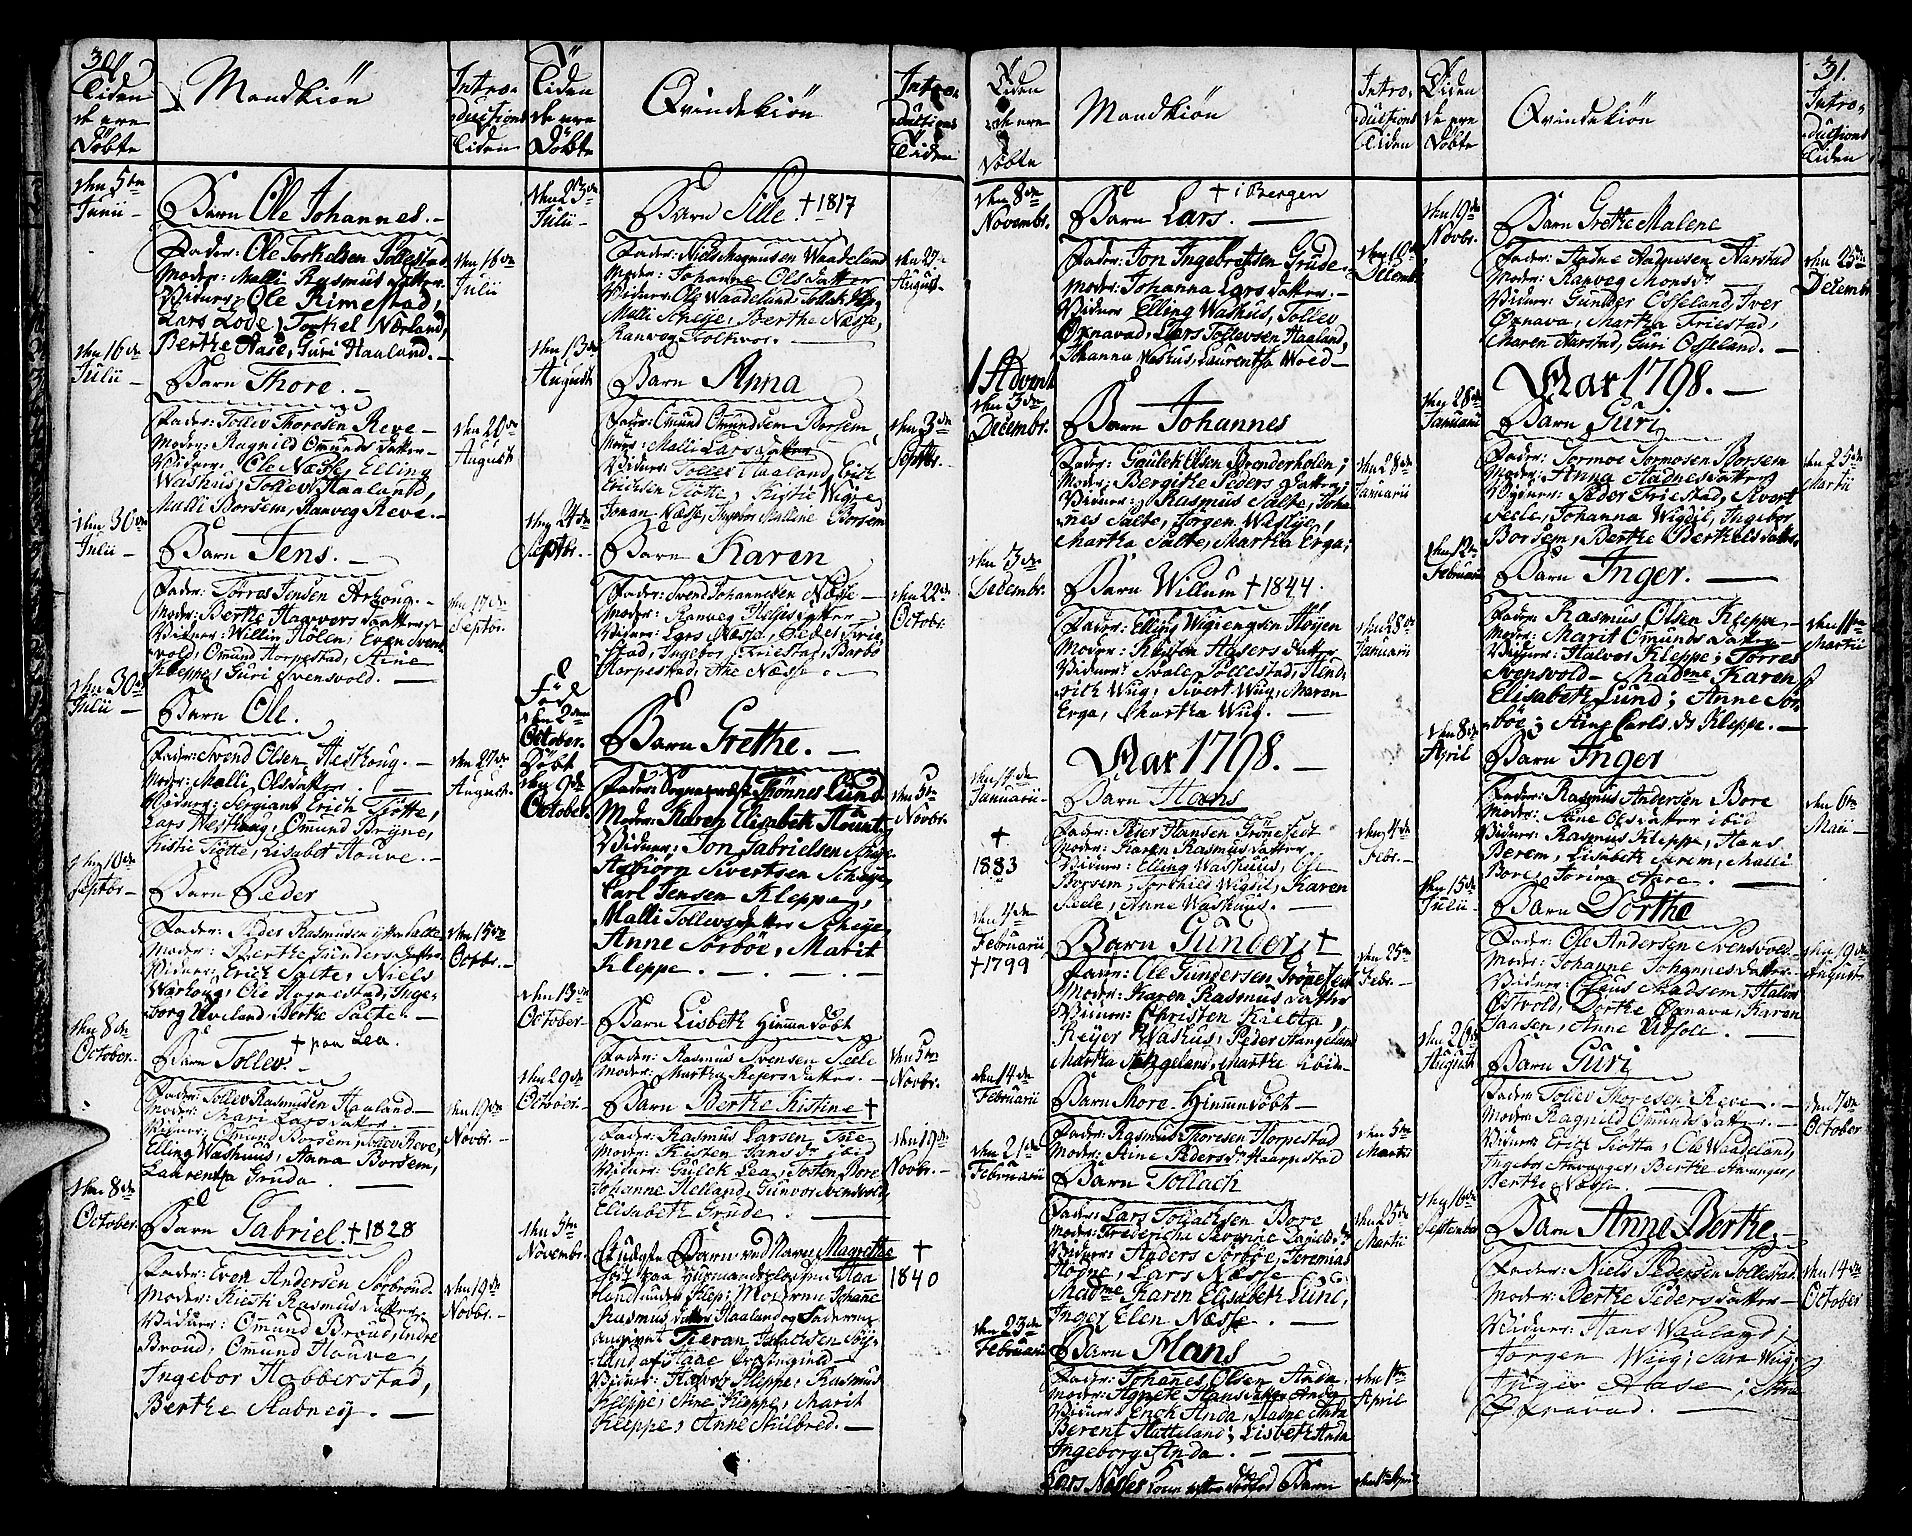 30.
Tiden de ere Döbte
Mandkiön
Introductions Tiden
dhn 5te Junii
Barn Ole Johannes.
Fader: Ole Torkelsen Tollestad
Moder: Malli Rasmus datter.
Vidner: Ole Rimestad,
Lars Lode, Torkel Nörland,
Berthe Aase, Guri Haaland.
dhn 16de Julii
dhn 16de Julii
Barn Thore.
Fader: Tollev Thoresen Reve
Moder: Ragnild Omunds datter
Vidner: Ole Næsse, Elling
Washus, Tollev Haaland,
Malli Borsem, Ranveg Reve.
dhn 20de Augusti
dhn 30de Julii
Barn Jens.
Fader: Torres Jensen
Moder: Berthe Haavors datter
Vidner: Willin Holen, Even Svens
vold, Omund Horpestad, Stine
Kleppe, Guri Svensvold.
dhn 17de Septbr.
dhn 30de Julii
Barn Ole.
Fader: Svend Olsen
Moder: Malli Olsdatter.
Vidner: Sergiant Erich Tiötte,
Lars, Omund Bryne,
Kistie Tiötte, Lisabet Houve.
dhn 27de Augusti.
dhn 10de Septbr.
Barn Peder
Fader: Peder Rasmusen
Moder: Berthe Gunders datter
Vidner: Erich Salte, Niels
Warhoug, Ole Hognestad, Inge-
borg, Berthe Salte.
dhn 15de Octbr.
dhn 8de October.
Barn Tollev. † paa Lea.
Fader: Tollev Rasmusen Haaland
Moder: Mari Lars datter
Vidner: Omund Borsem, Tollev Reve,
Elling Washuus, Anna Borsem,
Laurentza Gruda.
dhn 19de Novbr.
dhn 8de October.
Barn Gabriel. † 1828
Fader: Even Andersen Sörbröud
Moder: Kiesti Rasmus datter
Vidner: Omund Bröud, Endre
Broud, Omund Houve,
Ingebor Hobberstad,
Berthe Stabney.
dhn 19de Novbr.
Tiden de ere Döbte
Qvindekiön
Introductions Tiden
dhn 23de Julii
Barn Sille. † 1817
Fader: Niels Magnusen Waadeland
Moder: Johanne Ols datter
Vidner: Ole Waadeland, Tollek
Malli Scheje, Berthe Næsse,
Ranvog Folkvor.
dhn 27de August
dhn 13de Augusti
Barn Anna
Fader: Omund Omundsem Borsem
Moder: Malli Lars datter
Vidner: Tollev Haaland, Erich
Erichsen Tiötte, Kistie Wigre
Johan Næsse, Ingebor Malline Borsem
dhn 3de Septbr.
dhn 24de Septbr.
Barn Karen
Fader: Svend Johannesen Næsse
Moder: Ranveg Helles datter
Vidner: Lars Næsse, Peder Frie-
stad, Ingebor Friestad, Barbo
Horpestad, Ane Næsse.
dhn 22de Octobr.
Föd dhn 2den October. Döbt dhn 9de October.
Barn Grethe.
Fader: Sognepræst Thönnes Lund
Moder: Karen Elisabeth Hount
Vidner: Jon Gabrielsen Scheje
Asbiörn Sivertsen Scheje,
Carl Jensen Kleppe,
Malli Tollevs datter Scheje,
Anne Sörböe, Marit
Kleppe.
dhn 5te Novbr.
dhn 13de October
Barn Lisbeth Hiemmedöbt
Fader: Rasmus Svensen Seele
Moder: Martha Rejers datter.
dhn 5te Novbr.
dhn 29de October
Barn Berthe Kistine †
Fader: Rasmus Larsen Frie
Moder: Kisten Jans dr ibid
Vidner: Gulek Lea, Torsten Bore
Johanne Helland, Gunvor
Elisabeth Grude.
dhn 19de Novbr.
dhn 5te Novembr.
Barn ved Navn Magrethe
föd paa Huusmandspladsen Haa
land under Klep; Moderen Johane
Rasmus datter Haaland og Faderen
angivet Tieran Isaachsen
land af Haae Præstegield
Vidner: Halvor Kleppe, Rasmus
Kleppe, Stine Kleppe, Marit
Kleppe, Anne Skilbred.
† 1840
31.
Tiden de ere Döbte
Mandkiön
Introductions Tiden
dhn 8de Novembr.
Barn Lars. † i Bergen
Fader: Jon Ingebretsen Grude.
Moder: Johanna Lars datter.
Vidner Elling Washus, Tollev
Öxnavad, Lars Tollevsen Haaland,
Johanna Washus, Laurentza Wold
dhn 10de Decembr.
1 Advent dhn 3de Decembr.
Barn Johannes
Fader: Gaulek Olsen Brenderholen;
Moder: Bergithe Peders datter;
Vidner: Rasmus Salte, Johan
nes Salte, Jörgen Wastije,
Martha Salte, Martha Erga;
dhn 28de Januarii
dhn 3de Decembr.
Barn Willum † 1844.
Fader: Elling Wigiengsen Höyen
Moder: Kirsten Agiers datter
Vidner: Svale Pollestad, Hind
rich Wiig, Sivert Wiig, Maren
Erga, Martha Wiig.
dhn 28de Januarii
Aar 1798.
dhn 14de Januarii
Barn Hans
† 1883
Fader: Peter Hansen Grönefest
Moder: Karen Rasmus datter
Vidner: Elling Washuus, Ole
Borsem, Sorthied Wigdil, Karen
Seele, Anne Washuus.
dhn 4de Febr.
dhn 4de Februarii
† 1799
Barn Gunder †
Fader: Ole Gundersen
Moder: Karen Rasmus datter
Vidner: Christen Kielta,
Rejer Washus, Peder Aangeland
Martha Angeland, Marthe ibidn
dhn 25de Febr.
dhn 14de Februarii
Barn Thore. Hiemmedöbt
Fader: Rasmus Thoresen Horpestad
Moder: Stine Peders dr. Haarpestad
dhn 5te Martii
dhn 21de Februarii
Barn Tollach
Fader: Lars Tollachsen Bore
Moder: Frederiche Savanne Daniels dr
Vidner: Aaders Sörböe, Jeremias
Hogne, Lars Næsse
Madme Karen Elisabeth Lund,
Inger Elen Næsse.
dhn 25de Martii
dhn 23de Februarii
Barn Hans
Fader: Johanes Olsen Anda
Moder: Agnete Hans datter Anda
Vidner: Erich Anda, Stadne Anda
Berent Hatteland; Lisbeth Anda
Ingeborg Anda.
dhn 1te April
Lars Næsses Dödföd Barn
dhn 8de April
Tiden de ere Döbte
Qvindekiön
Introductions Tiden
dhn 19de Novbr.
Barn Grethe Malene
Fader: Stadne Aadnesen Aarstad
Moder: Ranveg Mons dr
Vidner: Gunder Osseland, Iver
Öxnava, Martha Friestad,
Maren Aarstad, Guri Osseland.
dhn 25de Decembr
Aar 1798.
dhn 28de Januarii
Barn Guri
Fader: Tormoe Tormosen Borsem
Moder: Anna Aadnes datter
Vidner: Peder Friestad, Sivort
Seele, Johanna Wigdil, Ingebor
Borsem, Berthe Berthels datter.
dhn 25de Martii
dhn 12te Februarii
Barn Inger.
Fader: Rasmus Olsen Kleppe
Moder: Marit Omunds datter
Vidner: Halvor Kleppe; Torres
Svensvold Madme Karen
Elisabeth Lund; Anne Sör
böe; Ane Carls dr Kleppe.
dhn 11te Martii
dhn 8de April
Barn Inger
Fader: Rasmus Andersen Bore
Moder: Ane Olsdatter ibid
Vidner: Rasmus Kleppe, Hans
Berem, Lisabeth Serem, Malli
Bore, Torina Stare.
dhn 6te Maii
dhn 15de Julii
Barn Dorthe
Fader: Ole Andersen Svensvold
Moder: Johanne Johannes datter
Vidner: Claus Madsem, Halvor
Östvold, Dorthe Öxnava, Karen
Jaasen, Anne Udsole.
dhn 19de August
dhn 26de August
Barn Guri
Fader: Tollev Thoresen Reve.
Moder: Ragnild Omunds datter.
Vidner: Erich Tiötta, Ole Waadeland,
Ingebor Stavanger, Berthe Stavanger,
Berthe Næsse.
dhn 7de October
dhn 16de September
Barn Anne Berthe.
Fader: Niels Pedersen Tollestad
Moder: Berthe Peders datter
Vidner: Hans Waaland,
Jörgen Wiig, Sara Wiig,
Inger Aase; Stine
Öxnavad.
dhn 14de October